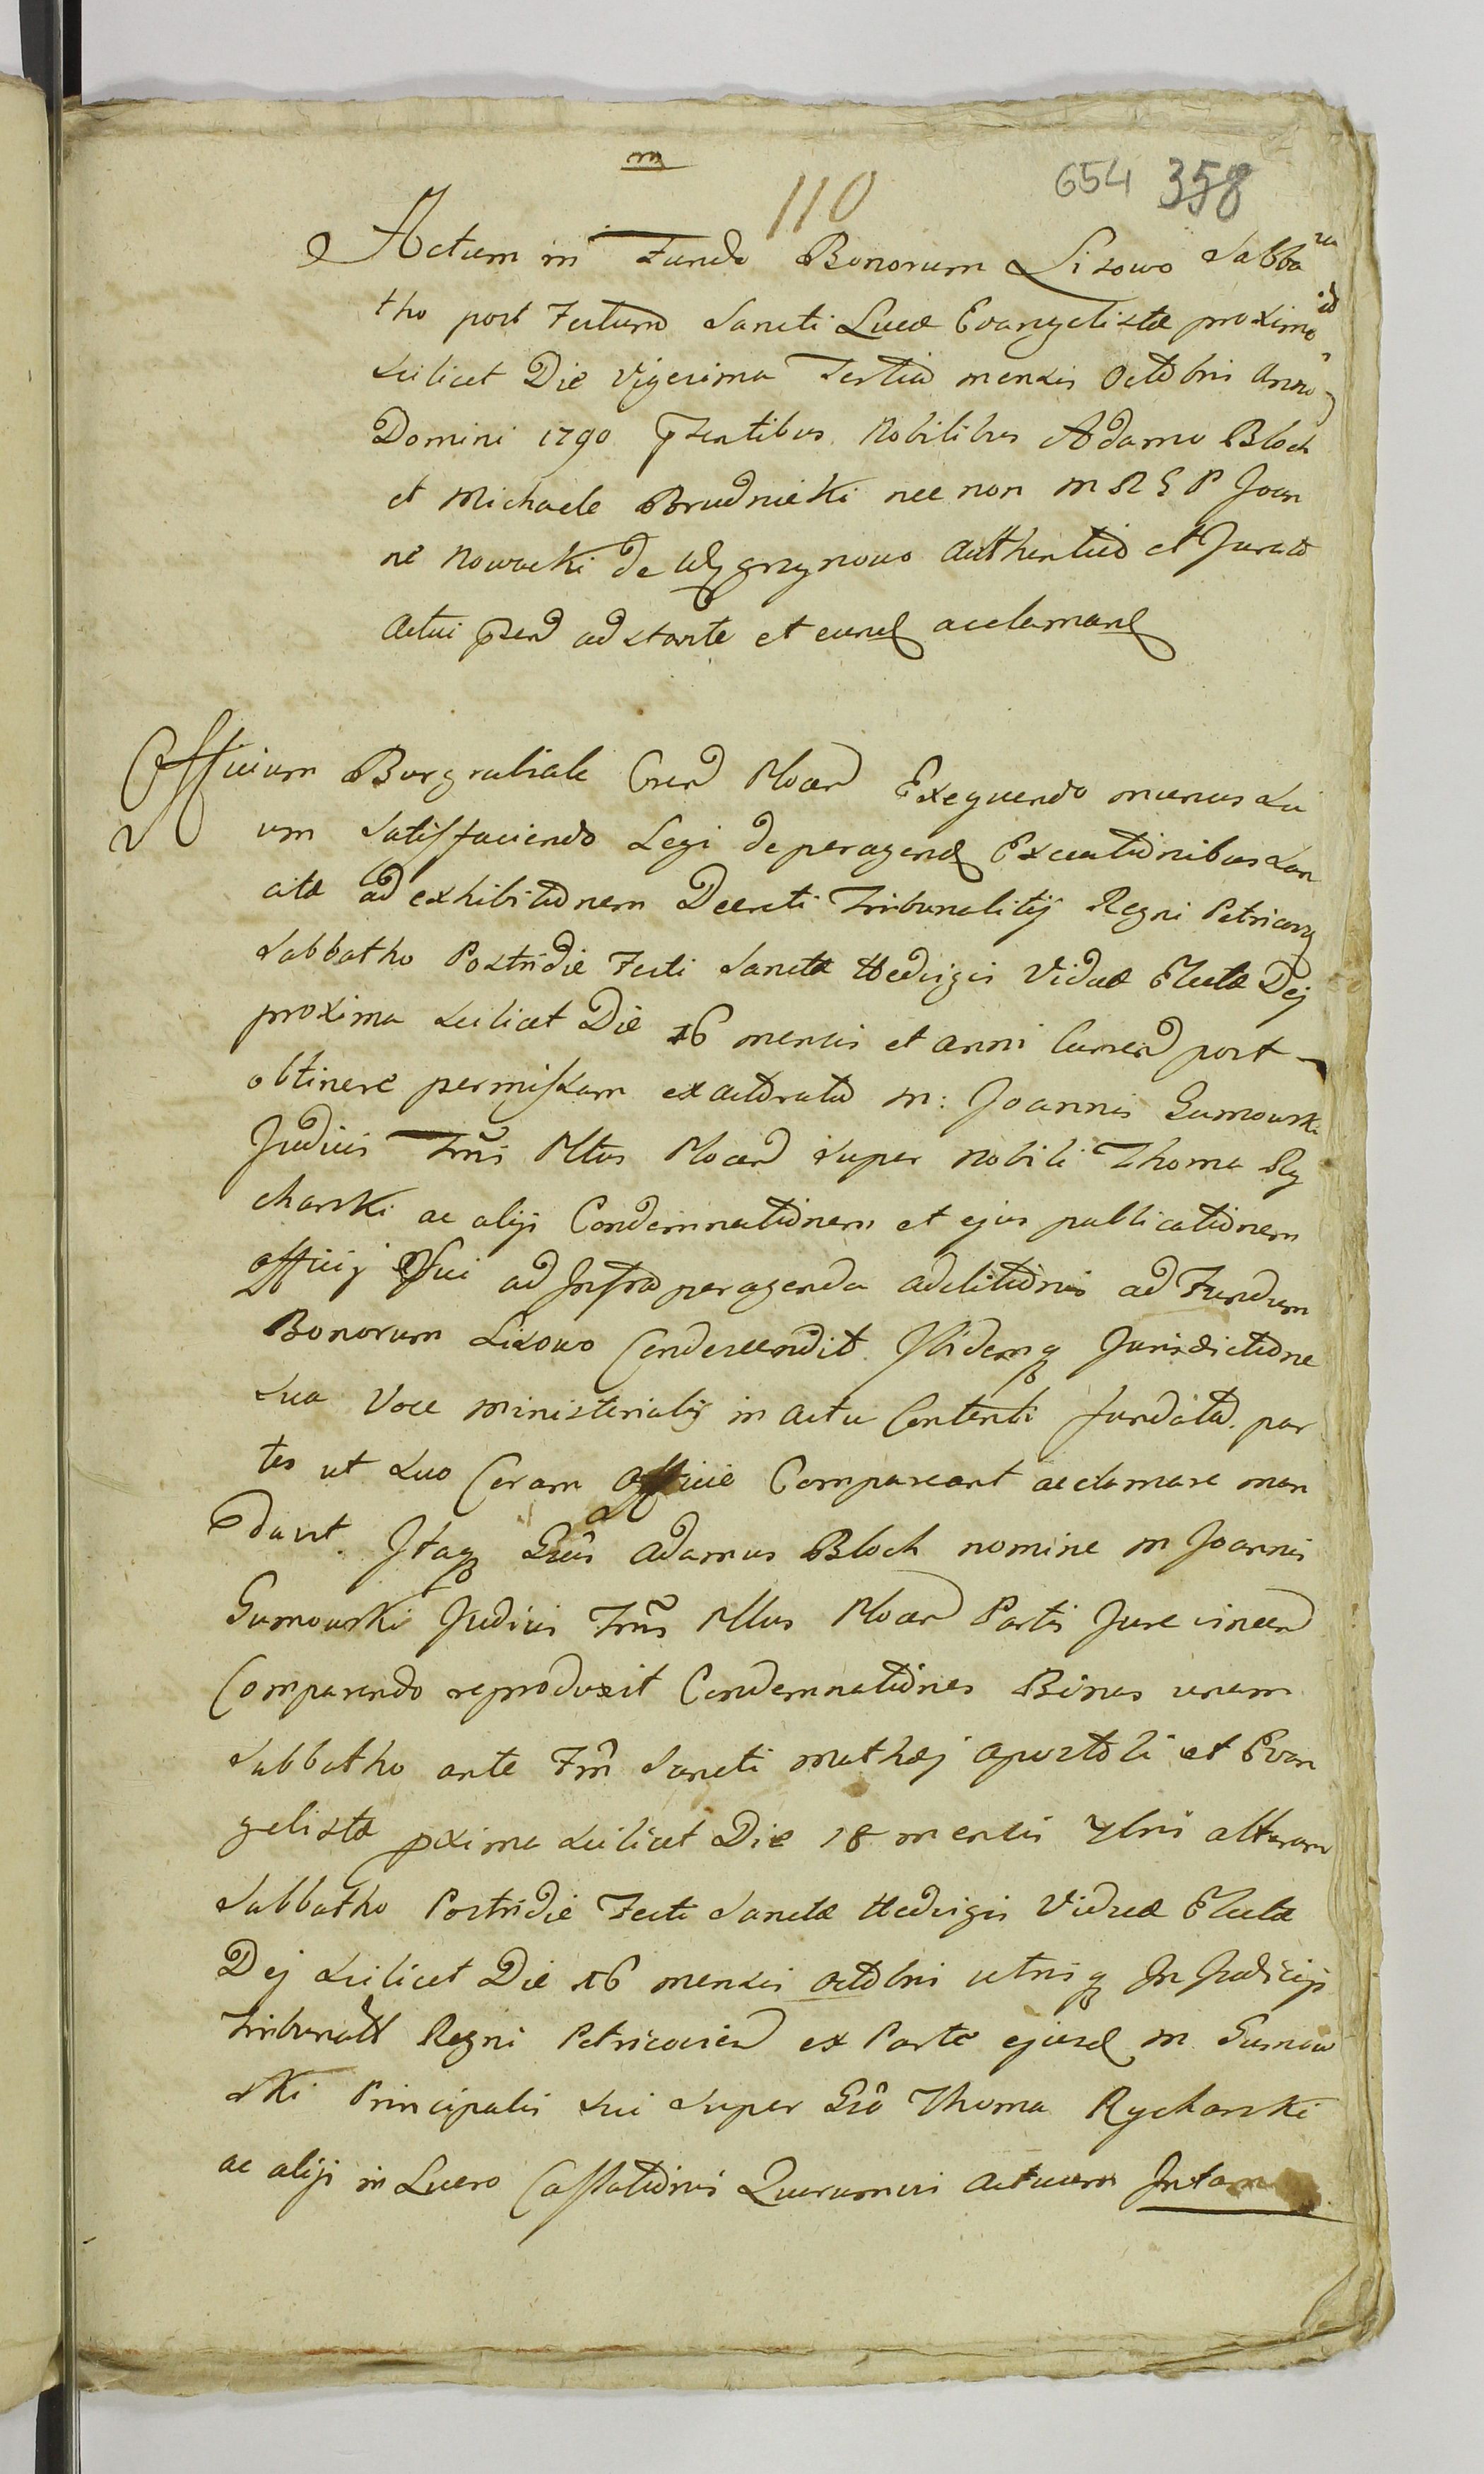 m
110
654 358
Actum in Fundo Bonorum Lisowo Sabba
tho post Festum Sancti Lucæ Evangelistæ proximo
scilicet Die Vigesima Tertia mensis Octobris Anno
Domini 1790 psentibus Nobilibus Adamo Bloch
et Michaele Brudnicki nec non M R G P Joan
ne Nowacki de authentico et Jurato
actui psen adstante et eund acclamand
Officium Burgrabiale Cren Plocen Exequendo munus su
um satisfaciendo Legi de peragend Executionibus san
citæ ad exhibitionem Decreti Tribunalitij Regni Petricovg
Sabbatho Postridie Festi Sanctæ Hedvigis Viduæ Electæ Dej
proxima scilicet Die 16 mensis et anni Curren post
obtinere permissam exactorata M: Joannis Gumowski
Judicis Trris Pltus Plocen super Nobili Thoma Ry
charski ac alijs Condemnationem et ejus publicationem
officij sui ad Infra peragenda aditionis ad Fundum
Bonorum Lisowo Condescendit. Ibidemq Jurisdictione
sua Voce ministerialis in actu Contenti fundata. par
tes ut suo Coram Officio Compareant acclamare man
davit. Itaq Gnsus Adamus Bloch nomine M Joannis
Gumowski Judicis Trris Pltus Plocen Partis Jure vincen
Comparendo reproduxit Condemnationes Binas unam
Sabbatho ante Fm Sancti Mathæj Apostoli et Evan
gelistæ pxima scilicet Die 18 mensis 7bris alteram
Sabbatho Postridie Festi Sanctæ Hedvigis Viduæ Electæ
Dej scilicet Die 16 mensis Octobris utrisq In Judicijs
Tribunall Regni Petricovien ex Parte ejusd M Gumow
ski Principalis sui super Gso Thoma Rycharski
ac alijs in Lucro Cassationis Quorumvis actuum